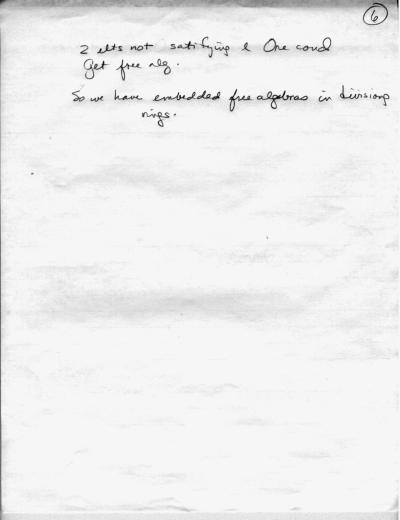 6
2 elts not satisfying l Ore cond
Get free alg.
So we have embedded free algebras in division
rings.